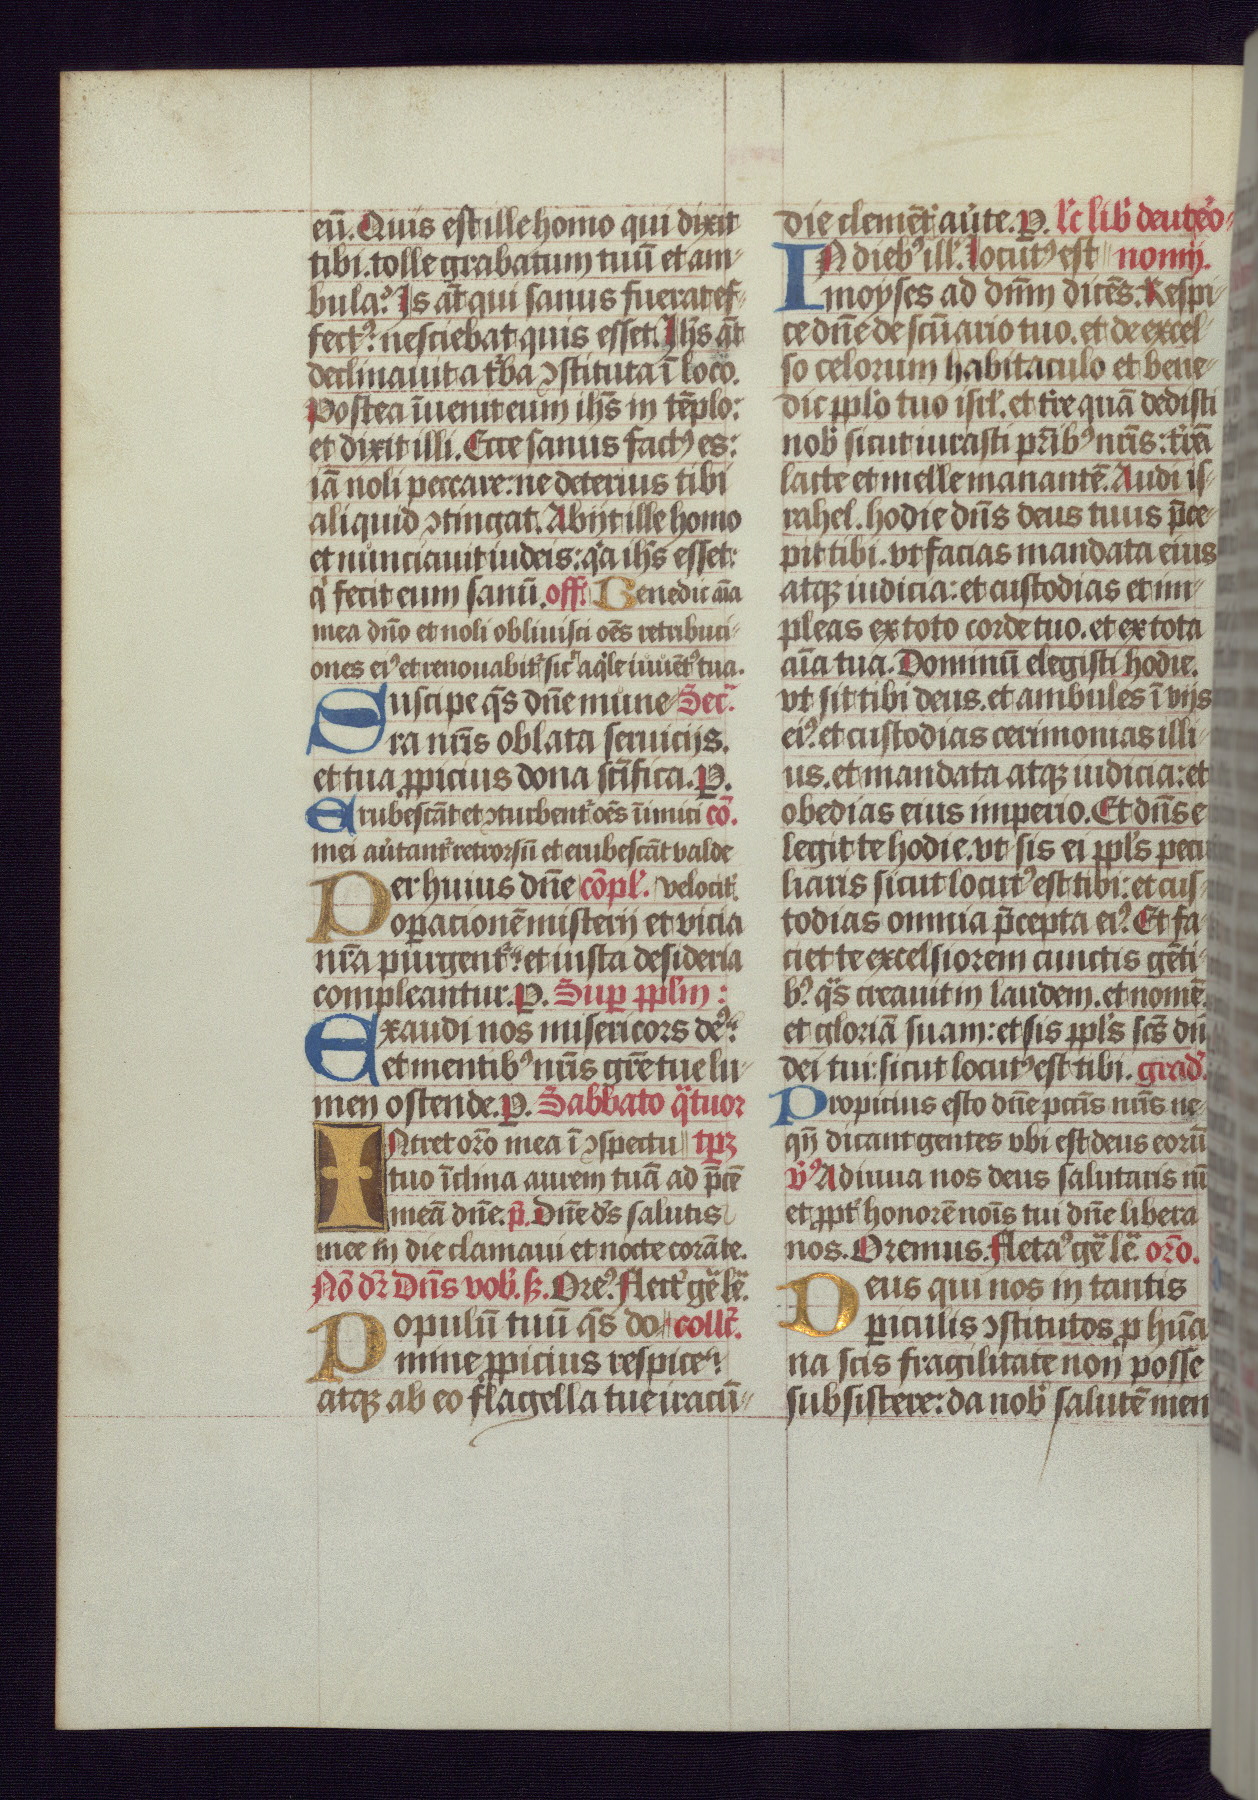 eū. Quis est ille homo qui dixit
tibi. tolle grabatum tuū et am-
bula? Is āt qui sanus fuerat ef-
fectꝰ: nesciebat quis esset. Ihs āt
declinauit a tᵉba ↄstituta ī loco.
Postea īuenit eum ihs in tēplo:
et dixit illi. Ecce sanus factꝰ es:
iā noli peccare: ne deterius tibi
aliquid ↄtingat. Abijt ille homo
et nunciauit iudeis: qa ihs esset:
q fecit eum sanū. off. Benedic aīa
mea dno et noli obliuisci oēs retribuci-
ones eiꝰ et renouabit sicᵗ aqͥle iuuētꝰ tua.
Suscipe qs dne mune Secr.
ra nris oblata seruicijs.
et tua ꝓpicius dona scīfica. P.
Erubescāt et ↄturbent oēs inimici cō.
mei auertant retrorsū et erubescāt valde
Per huius dne cōpl. velocit.
oꝑacionē misterij et vicia
nrā purgentᷣ: et iusta desideria
compleantur. P. Suꝑ pplm :
Exaudi nos misericors deꝰ:
et mentibꝰ nris grē tue lu-
men ostende. P. Sabbato qͣtuor
INtret orō mea ī ↄspectu tpꝝ
tuo īclina aurem tuā ad p̄cē
meā dne. p̄. Dne ds salutis
mee in die clamaui et nocte corā te.
Nō dr Dns vob. s. Oreꝰ. flectᵃ geͣ leͣ.
Populū tuū qs do- collc.
mine ꝓpicius respice:
atqꝫ ab eo flagella tue iracū-
die clemēt auerte. P. lc lib deuteᵒ-
IN diebꝰ ill. locutꝰ est nomij.
moyses ad dnm dicēs. Respi-
ce dne de scuario tuo. et de excel-
so celorum habitaculo et bene-
dic pplo tuo isrl. et tre quā dedisti
nob sicut iurasti prībꝰ nris: trā
lacte et melle manantē. Audi is-
rahel. hodie dns deus tuus p̄ce-
pit tibi. vt facias mandata eius
atqꝫ iudicia: et custodias et im-
pleas ex toto corde tuo. et ex tota
aīa tua. Dominū elegisti hodie.
vt sit tibi deus. et ambules ī vijs
eiꝰ. et custodias cerimonias illi-
us. et mandata atqꝫ iudicia: et
obedias eius imperio. Et dns e
legit te hodie. vt sis ei ppls pecu
liaris sicut locutꝰ est tibi: et cus-
todias omnia p̄cepta eiꝰ. Et fa-
ciet te excelsiorem cunctis gēti-
bꝰ qͣs creauit in laudem. et nomē.
et gloriā suam: et sis ppls scs dn̄
dei tui: sicut locutꝰ est tibi. grad.
Propicius esto dne pccīs nris ne-
qn̄ dicant gentes vbi est deus eorū
vꝰ Adiuua nos deus salutaris nr̄
et ꝓpt honorē noīs tui dne libera
nos. Oremus. flectaꝰ geͣ leͣ. orō.
Deus qui nos in tantis
ꝑiculis ↄstitutos ꝓ hūa
na scis fragilitate non posse
subsistere: da nob salutē men